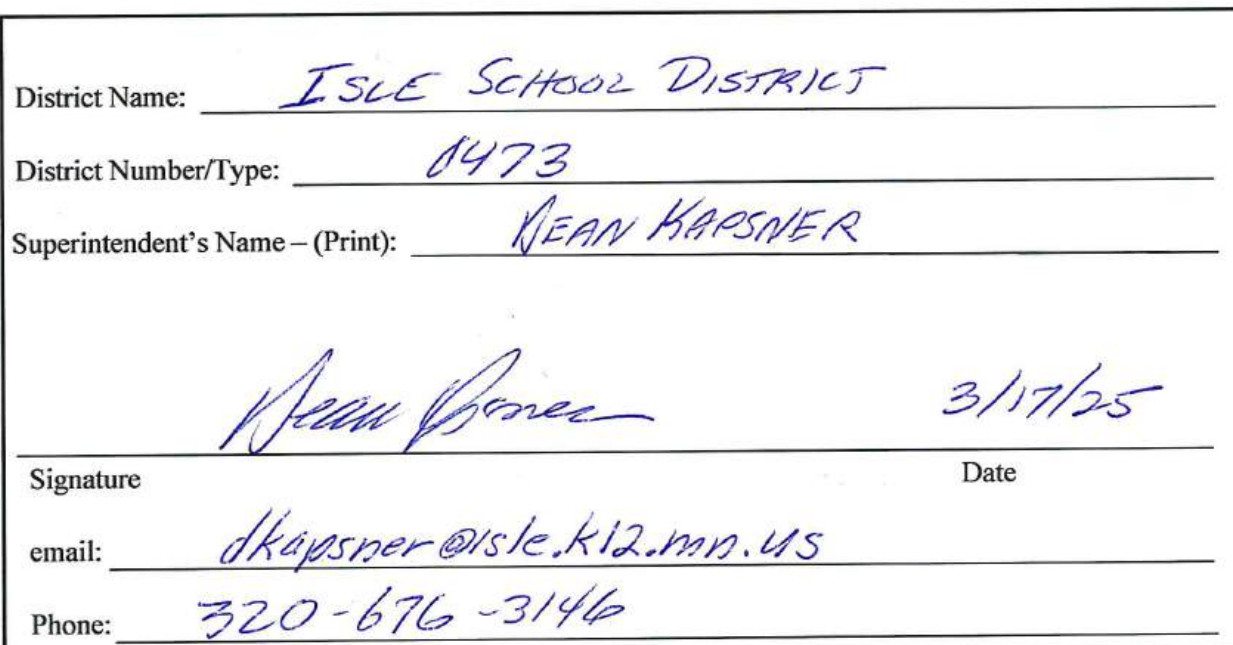 District Name: ISLE SCHOOL DISTRICT
District Number/Type: 0473
Superintendent's Name – (Print): DEAN KAPSNER
Dean Kapsner 3/17/25
Signature Date
email: dkapsner@isle.k12.mn.us
Phone: 320-676-3146